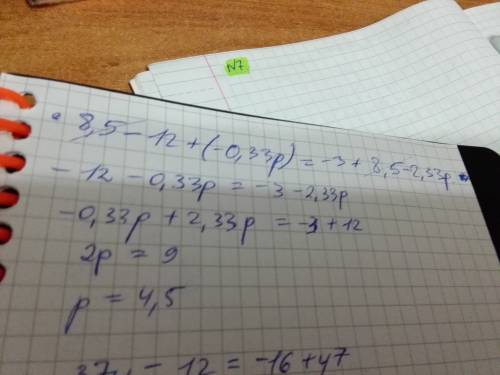 N7
8,5 - 12 + (-0,33p) = -3 + 8,5 - 2,33p
- 12 - 0,33p = -3 - 2,33p
-0,33p + 2,33p = -3 + 12
2p = 9
p = 4,5
- 12 = -16 + 47